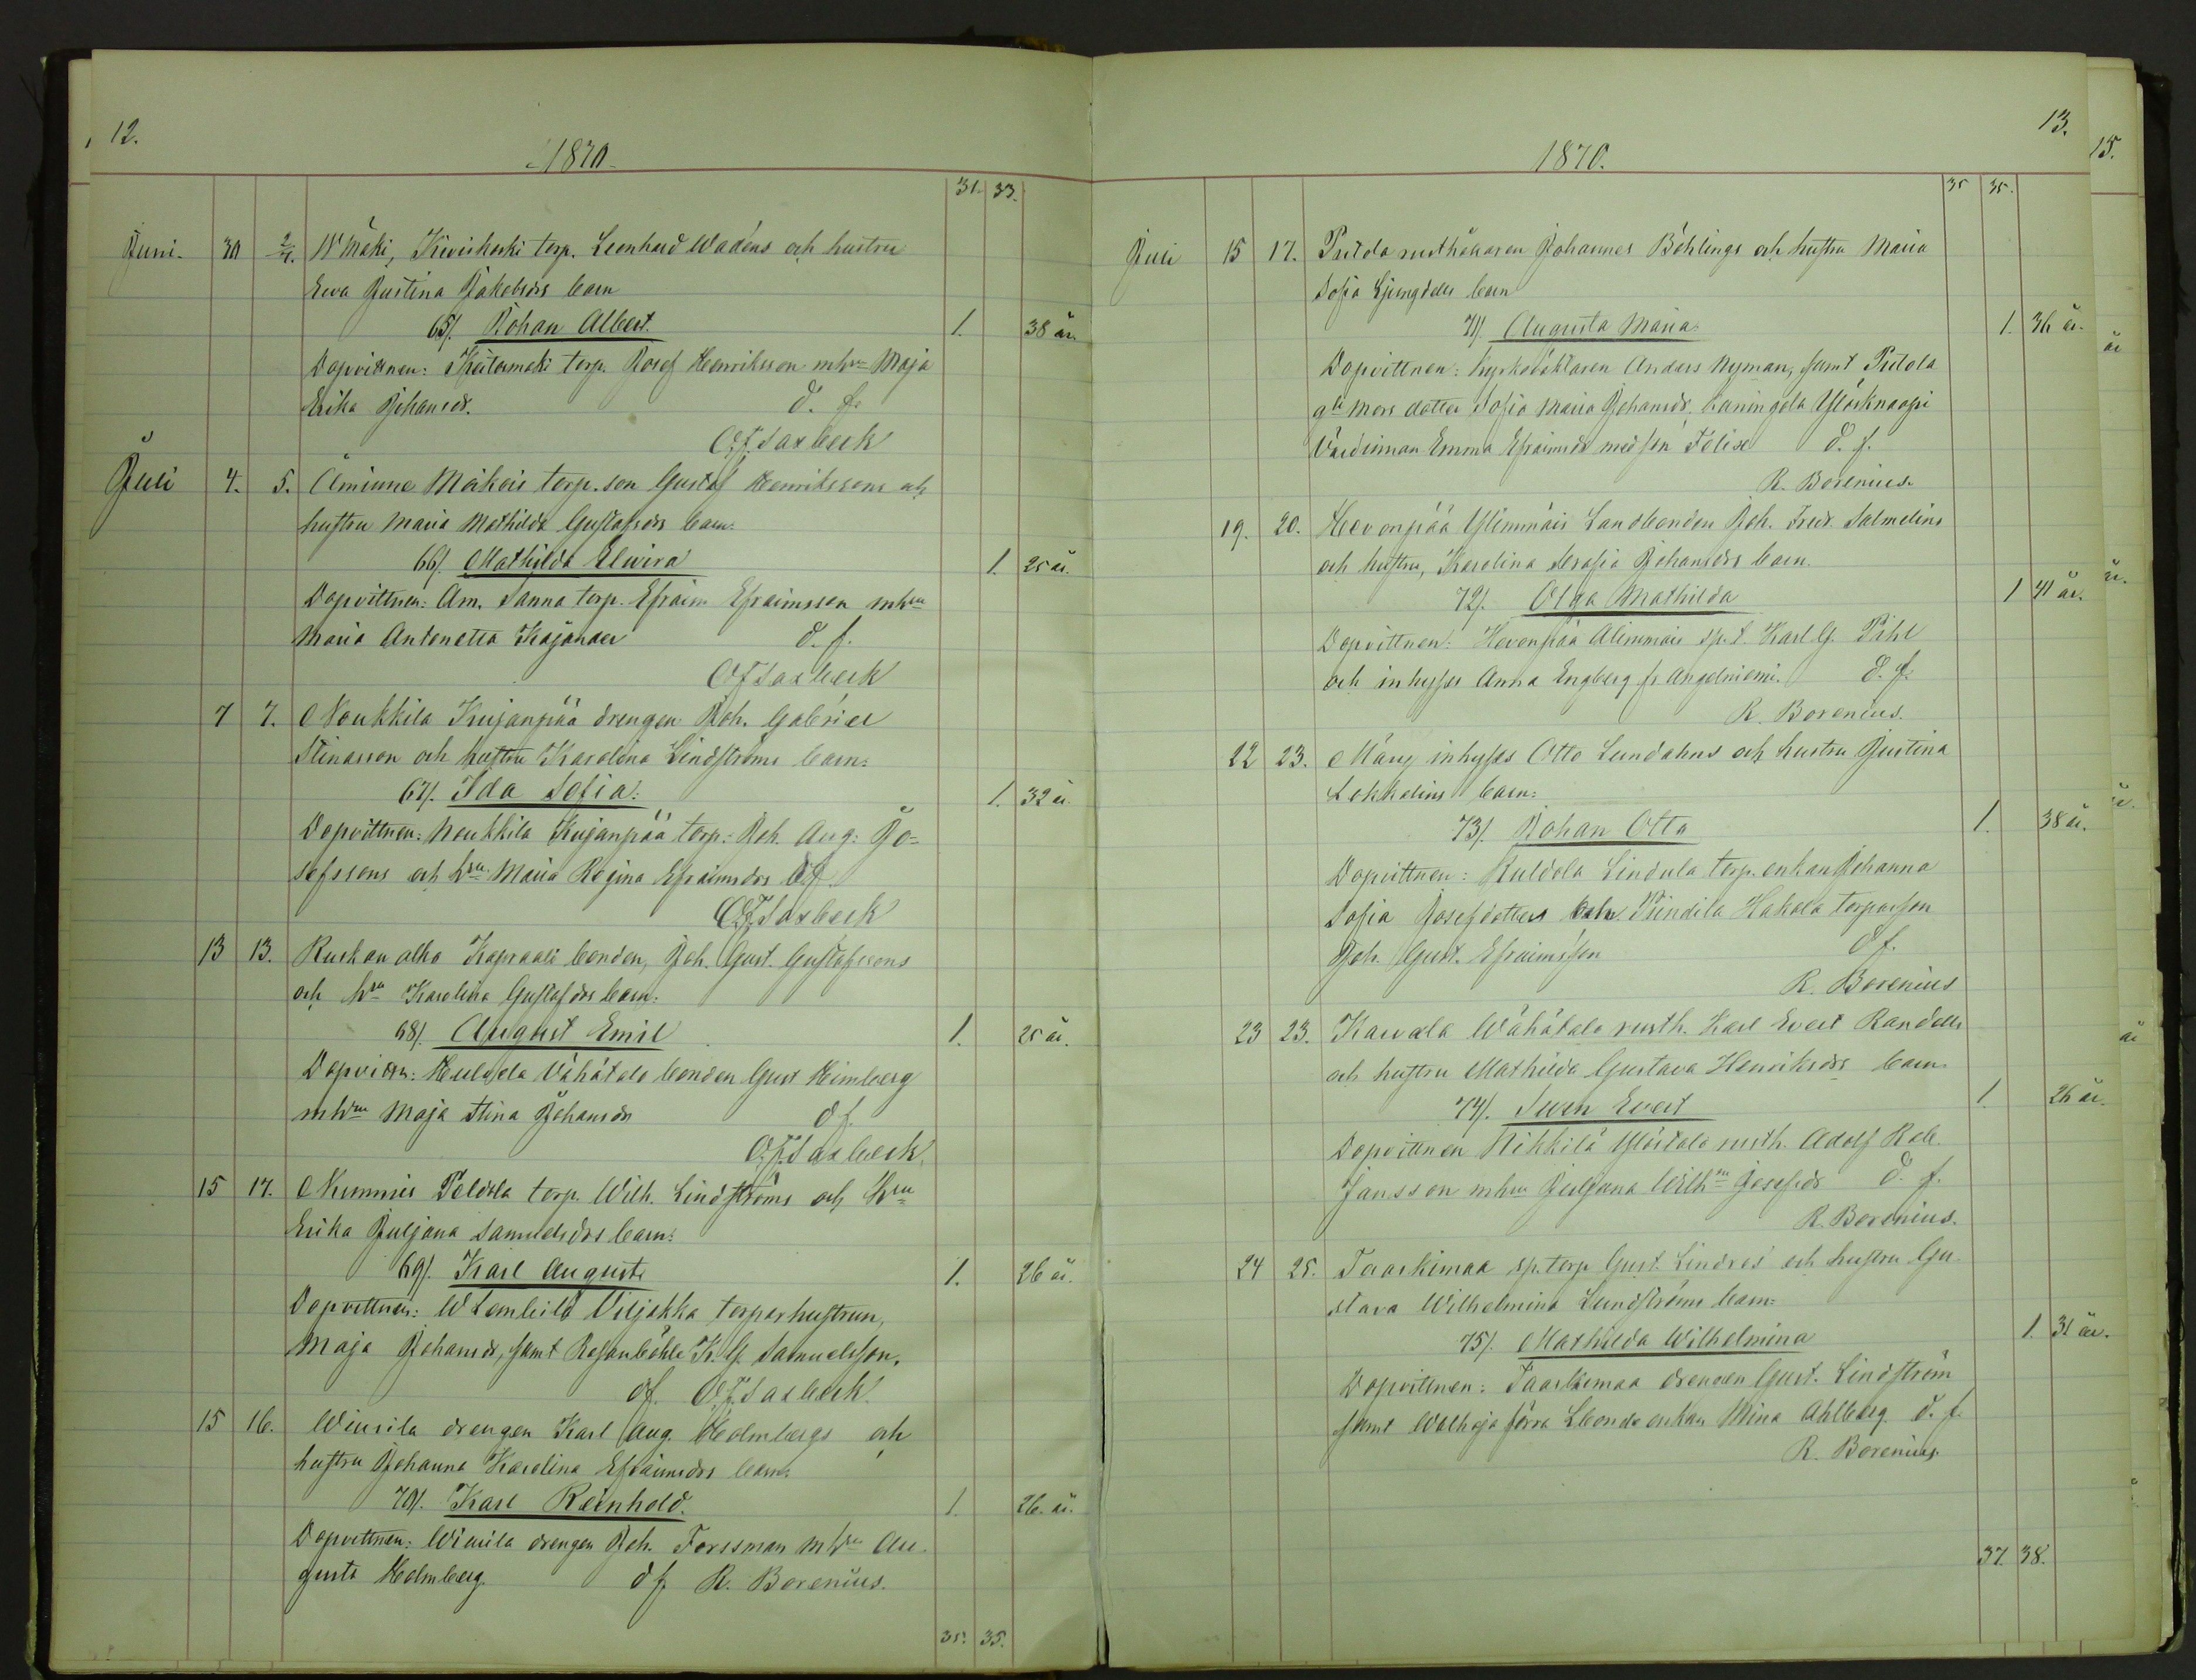 12.
1870.
31. 33.
Juni. 30 2/7. W Mäki, Kivikoski torp. Leonhard Wadéns och hustru
Eva Justina Jakobsdrs barn
65/. Johan Albert. 1. 38 år.
Dopvittnen: torp. Josef Henriksson mhu Maja
Erika Johansdr. d. f.
O.F. Saxbeck
Juli 4. 5. Åminne Moikois torp. son Gustaf Henrikssons och
hustru Maria Mathilda Gustafsdrs barn:
66/. Mathilda Elvira 1. 25 år.
Dopvittnen: Åm. Sanna torp. Efraim Efraimsson mhu
Maria Antonetta Kajander d. f.
O F Saxbeck
7 7. Noukkila Kujanpää drengen Joh. Gabriel
Stinasson och hustru Karolina Lindströms barn:
67/. Ida Sofia: 1. 32 år.
Dopvittnen: Noukkila Kujanpää torp. Joh. Aug. Jo-
sefssons och hu Maria Regina Efraimsdrs d f.
O.F. Saxbeck
13 13. Ruskanalho Kapraali bonden, Joh. Gust. Gustafssons
och hu Karolina Gustafsdrs barn:
68/. August Emil 1. 25 år.
Dopvittn: Vähätalo bonden Gust Heimberg
mhu Maja Stina Johansdr d f.
O.F. Saxbeck
15 17. Nummis Peldola torp. Wilh. Lindströms och hu
Erika Juljana Samuelsdrs barn:
69/. Karl August 1. 26 år.
Dopvittnen: Viljakka torparhustrun,
Maja Johansdr, samt K. G. Samuelsson.
df. O.F. Saxbeck
15 16. Winsila drengen Karl Aug. Holmbergs och
hustru Johanna Karolina Efraimsdrs barn:
70/. Karl Reinhold. 1. 26. år.
Dopvittnen: Winsila drengen Joh. Forssman mhu Au-
gusta Holmberg d f R. Borenius.
35. 35.
13.
1870.
35 35.
Juli 15 17. Putola rusthållaren Johannes Böhlings och hustru Maria
Sofia Ljungdells barn
71/. Augusta Maria. 1. 36 år.
Dopvittnen: kyrkoväktaren Anders Nyman, samt Putola
gla Mors dotter Sofia Maria Johansdr. Kaningola
Värdinnan Emma Efraimsdr med son Felix d. f.
R. Borenius.
19. 20. Hevonpää Ylimmäis Landbonden Joh. Fredr. Salmelins
och hustru, Karolina Serafia Johansdrs barn.
72/. Olga Mathilda 1 41 år.
Dopvittnen: Hevonpää Alimmais sp. t. Karl G. Pihl
och inhyses Anna Engberg fr. Angelniemi. d. f.
R. Borenius.
22 23. Märy inhyses Otto Lundahns och hustru Justina
Lokkelins barn:
73/. Johan Otto 1. 38 år.
Dopvittnen: Kuldola Lindula torp. enkan Johanna
Sofia Josefsdotter Hakala torparson
Joh. Gust. Efraimsson d f.
R. Borenius
23 23. Karvala Wähätalo rusth. Karl Evert Randells
och hustru Mathilda Gustava Henriksdrs barn
74/. Sven Evert 1. 26 år.
Dopvittnen Nihkilä Ylöstalo rusth. Adolf Rob.
Jansson mhu Juljana Wilhna Josefsdr d. f.
R. Borenius.
24 25. Taarkimaa sp. torp Gust. Lindros' och hustru Gu-
stava Wilhelmina Lundströms barn:
75/. Mathilda Wilhelmina 1. 31 år.
Dopvittnen: Taarkimaa drengen Gust. Lindström
samt förra Lbonde enkan Mina Ahlberg d. f.
R. Borenius.
37. 38.
15.